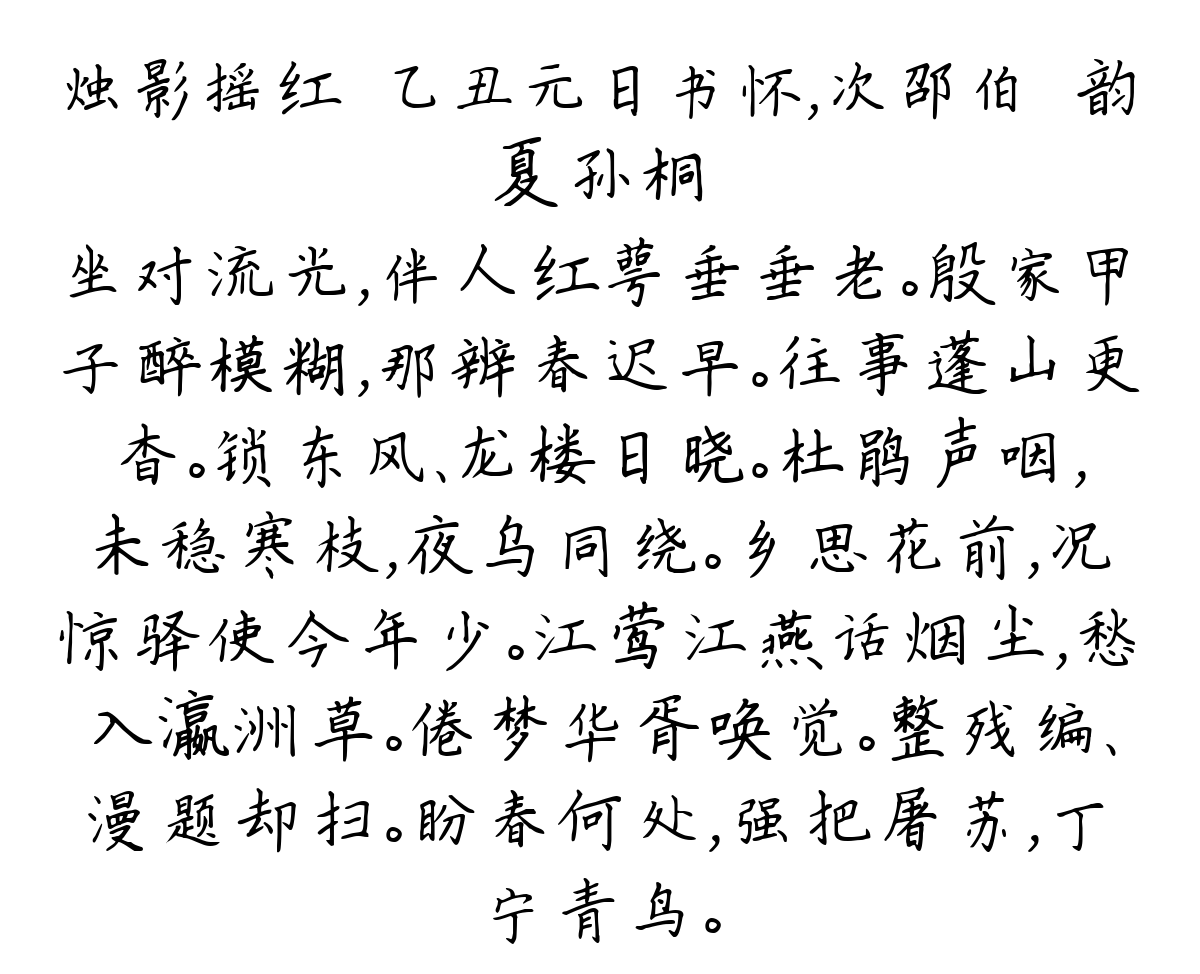 烛影摇红 乙丑元日书怀,次邵伯 韵
夏孙桐
坐对流光,伴人红萼垂垂老。殷家甲
子醉模糊,那辨春迟早。往事蓬山更
杳。锁东风、龙楼日晓。杜鹃声咽,
未稳寒枝,夜乌同绕。乡思花前,况
惊驿使今年少。江莺江燕话烟尘,愁
入瀛洲草。倦梦华胥唤觉。整残编、
漫题却扫。盼春何处,强把屠苏,丁
宁青鸟。